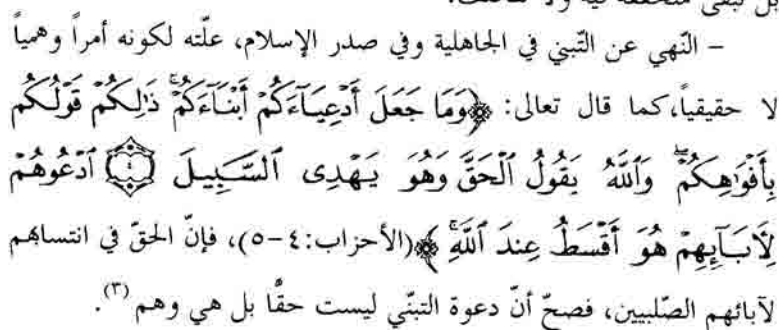 – النّهي عن التّبني في الجاهلية وفي صدر الإسلام، علّته لكونه أمراً وهمياً
لا حقيقياً،كما قال تعالى: ﴿وَمَا جَعَلَ أَدْعِيَآءَكُمْ أَبْنَآءَكُمْ ۚ ذَٰلِكُمْ قَوْلُكُم
بِأَفْوَٰهِكُمْ ۖ وَٱللَّهُ يَقُولُ ٱلْحَقَّ وَهُوَ يَهْدِى ٱلسَّبِيلَ ۝٤ ٱدْعُوهُمْ
لِأَبَآئِهِمْ هُوَ أَقْسَطُ عِندَ ٱللَّهِ ۚ﴾(الأحزاب:٤-٥)، فإنّ الحقّ في انتسابهم
لآبائهم الصّلبيين، فصحّ أنّ دعوة التبنّي ليست حقًّا بل هي وهم (٣).